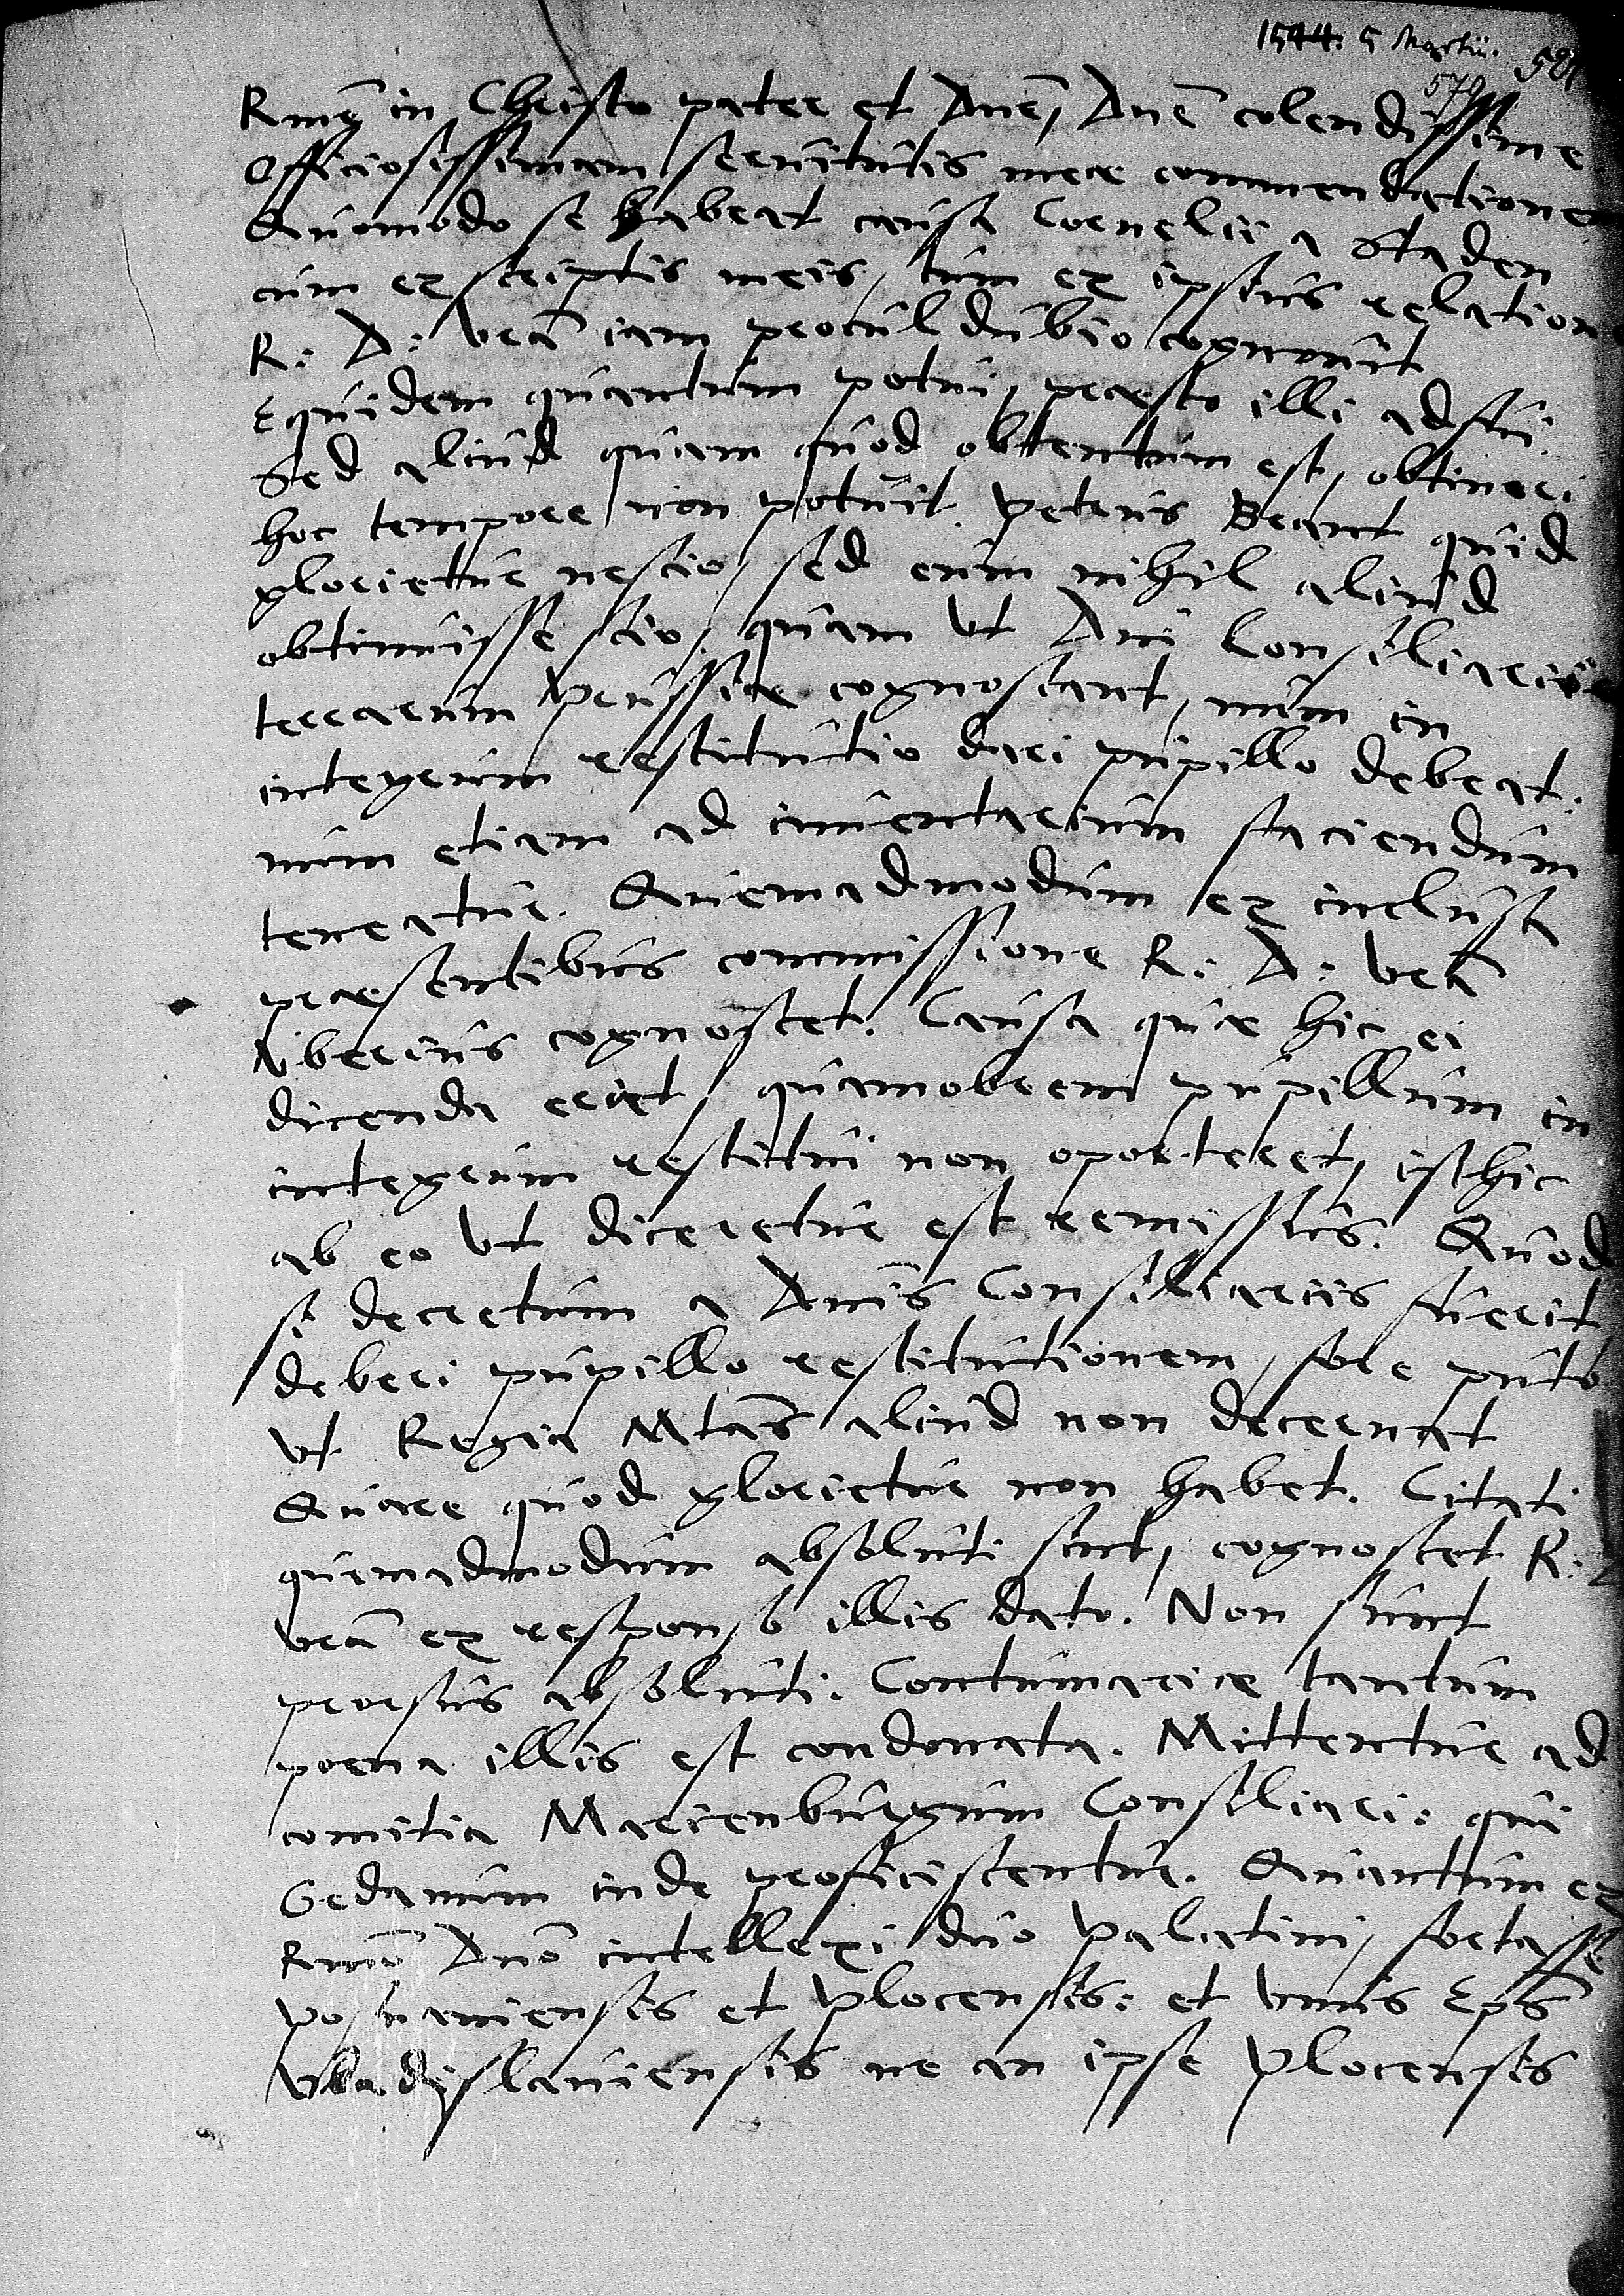 1544. 5 Martii.
579
Rme in Christo pater et Dne, Dne colendissime
Officiosissimam seruitutis meae commendationem
Quomodo se habeat causa Cornelii a Staden
cum ex scriptis meis, tum ex ipsius relation
R: D: vra iam procul dubio cognouit
Equidem quantum potui, praesto illi adfui.
Sed aliud quam quod obtentum est, obtineri
hoc tempore non potuit. Petrus Brant quid
glorietur nescio, sed eum nihil aliud
obtinuisse scio, quam vt Dni Consiliarii
terrarum Prussiae cognoscant, num in
integrum restitutio dari pupillo debeat:
num etiam ad inuentarium faciendum
teneatur. Quemadmodum ex inclusa
praesentibus commissione R: D: vra
vberius cognoscet. Causa quae hic ei
dicenda erat, quamobrem pupillum in
integrum restitui non oporteret, isthic
ab eo vt diceretur est remissus. Quod
si decretum a Dnis Consiliariis fuerit
deberi pupillo restitutionem, fore puto
vt Regia Mtas aliud non decernat
Quare quod glorietur non habet. Citati
quemadmodum absoluti sint, cognoscet R:
vra ex responso illis dato. Non sunt
prorsus absoluti. Contumaciae tantum
poena illis est condonata. Mittentur ad
comitia Marienburgum Consiliari: qui
Gedanum inde proficiscentur. Quantum ex
Rmo Dno intellexi duo Palatini, fortasse
Posnaniensis et Plocensis: et vnus Eps
Vladislauiensis ne an ipse Plocensis